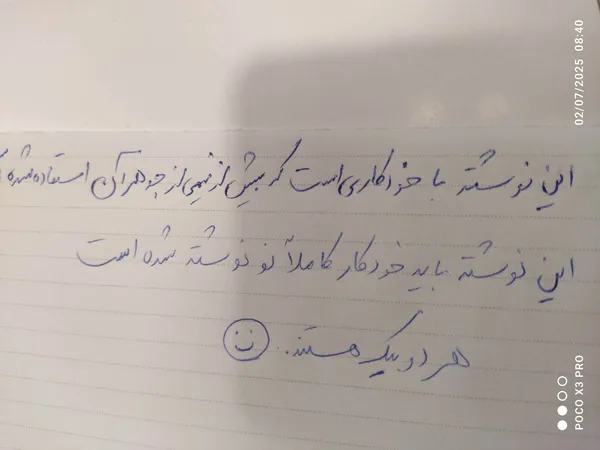 این نوشته با خودکاری است که بیش از نیمی از جوهر آن استفاده شده
این نوشته با یه خودکار کاملاً نو نوشته شده است
هر دو بیک هستند.
02/07/2025 08:40
POCO X3 PRO